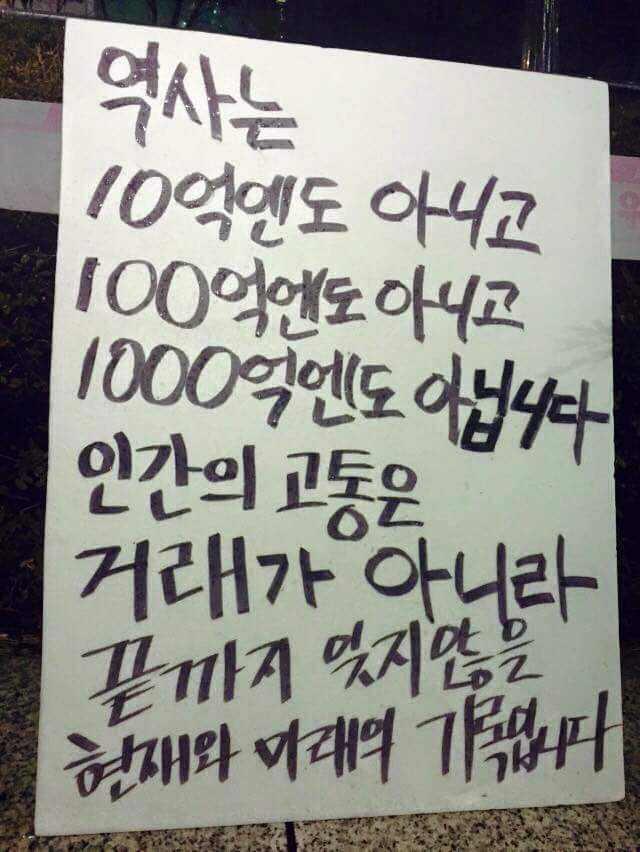 역사는
10억엔도 아니고
100억엔도 아니고
1000억엔도 아닙니다
인간의 고통은
거래가 아니라
끝까지 잊지않을
현재와 미래의 기록입니다